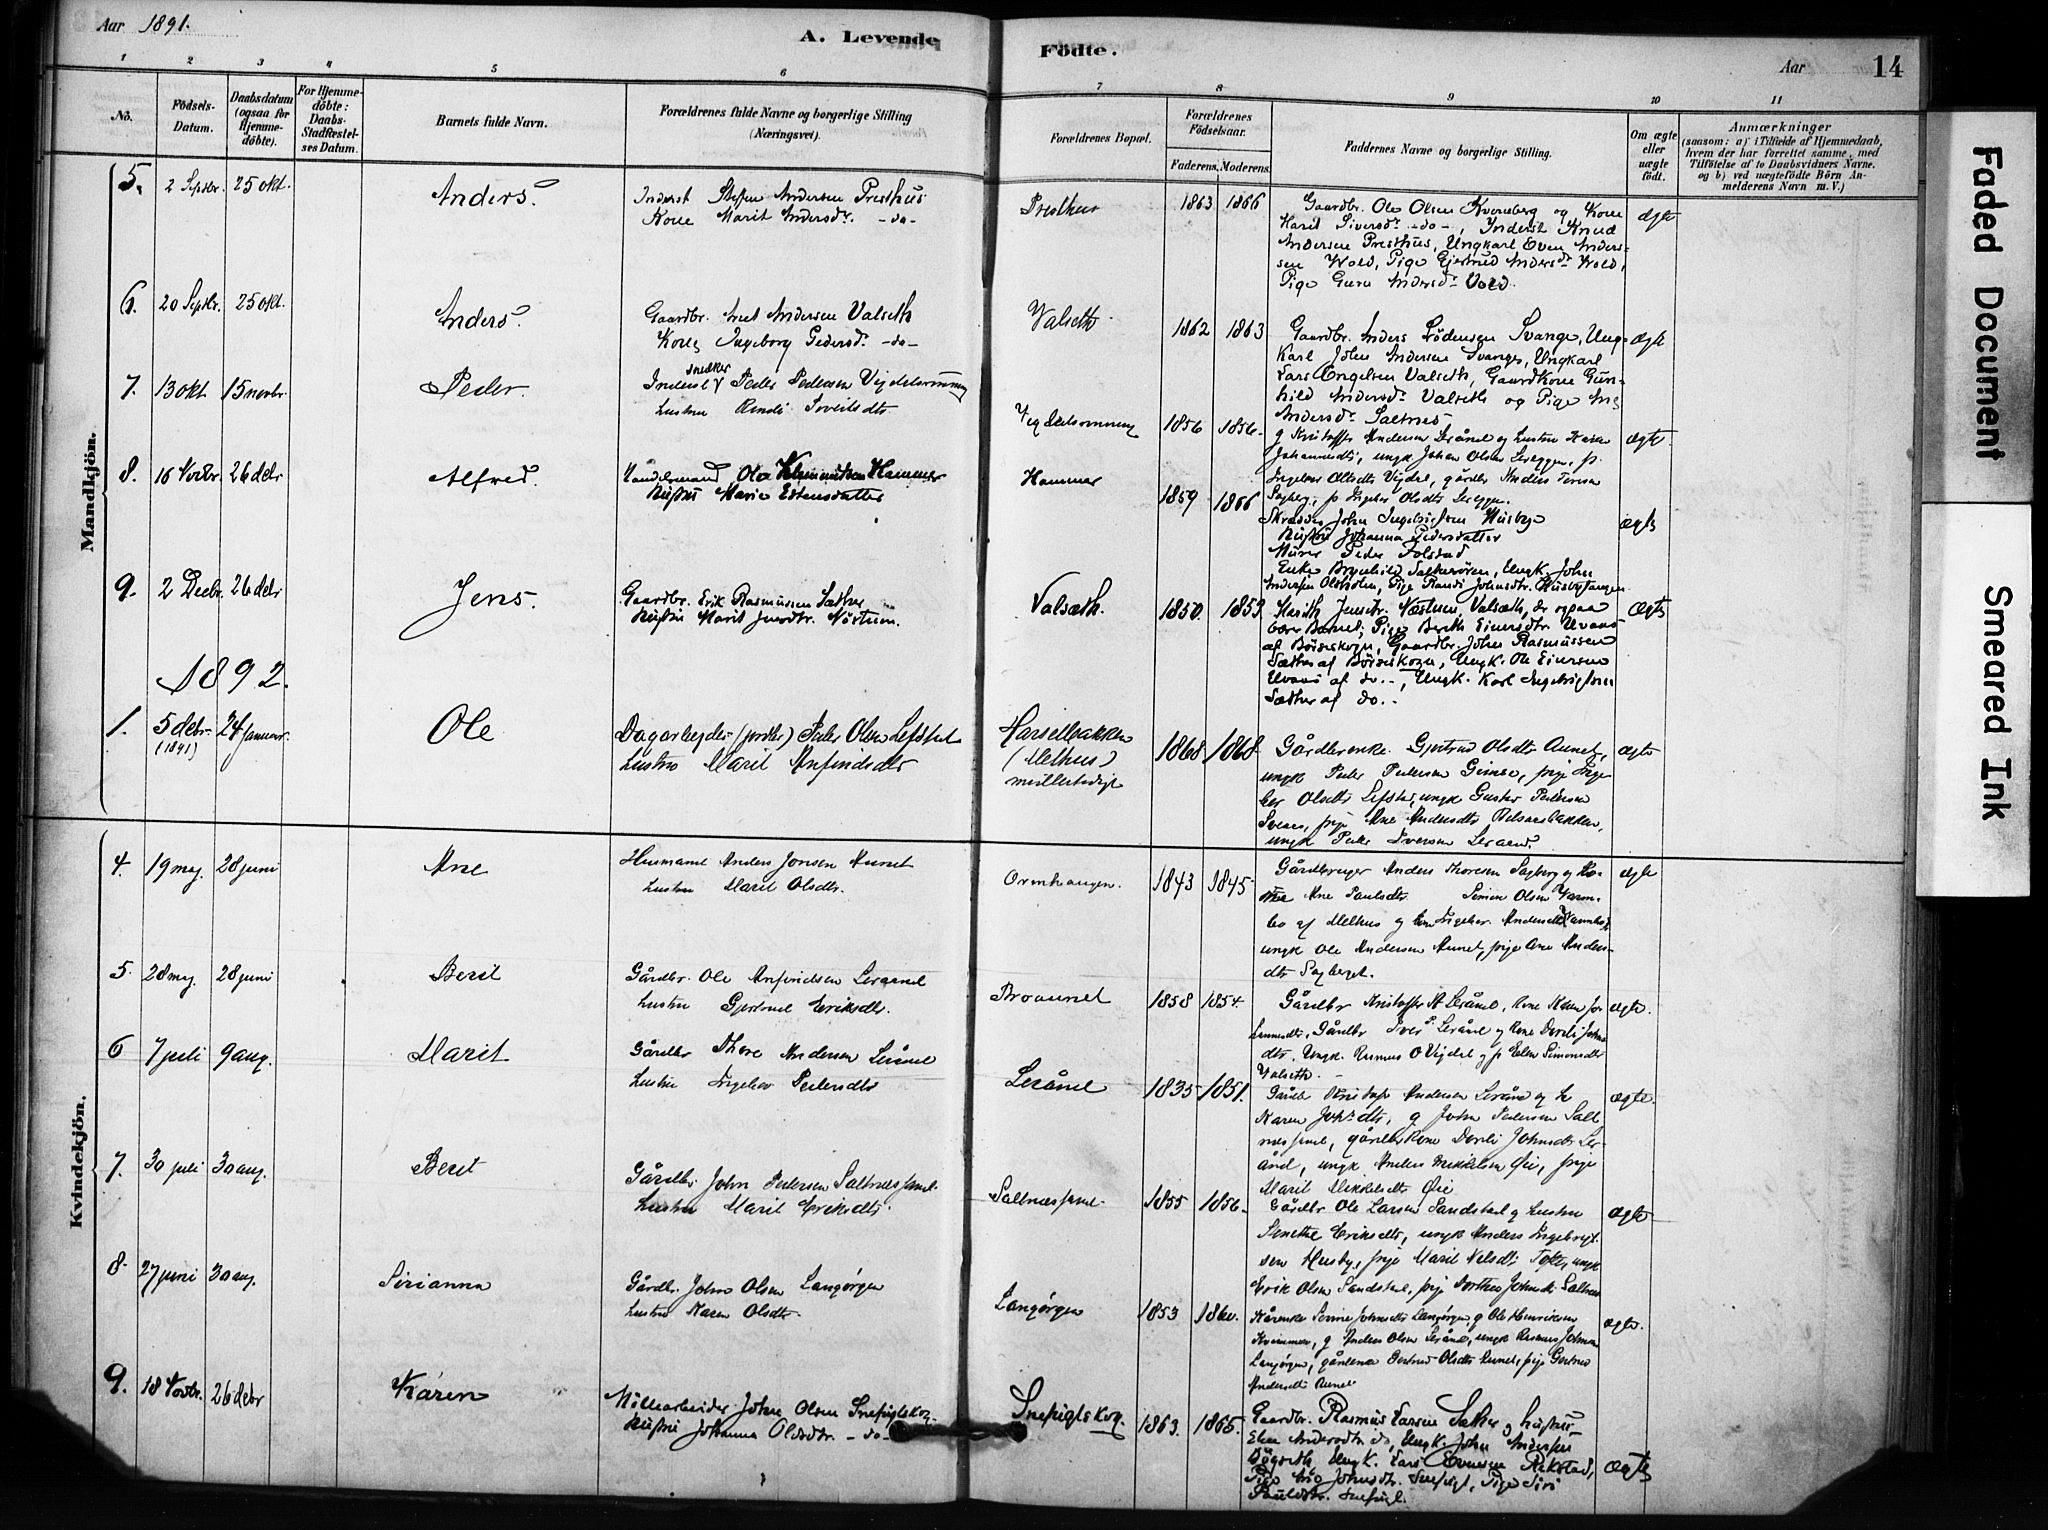 Aar 1891.
A. Levende Födte.
Aar
14
1 2 3 4 5 6 7 8 9 10 11
No.
Födsels-Datum.
Daabsdatum (ogsaa for Hjemmedöbte).
For Hjemmedöbte: Daabs-Stadfæstelses Datum.
Barnets fulde Navn.
Forældrenes fulde Navne og borgerlige Stilling (Næringsvei).
Forældrenes Bopæl.
Forældrenes Födselsaar.
Faderens. Moderens.
Faddernes Navne og borgerlige Stilling.
Om ægte eller uægte födt.
Anmærkninger
(saasom: a) i Tilfælde af Hjemmedaab,
hvem der har forrettet samme, med
Tilföielse af to Daabsvidners Navne.
og b) ved uægtefödte Börn An-
melderens Navn m. V.)
Mandkjön.
5. 2 Septbr. 25 okt. Anders.
Inderst Steffen Andersen Presthus
Kone Marit Andersdr. -do-
Presthus 1863 1866
Gaardbr. Ole Olsen Kverneberg og Kone
Marit Siversdr. -do-, Inderst Knud
Andersen Presthus, Ungkarl Even Anders-
sen Wold, Pige Gjertrud Andersdr. Wold,
Pige Guru Andersdr. Vold.
ægte
6. 20 Septbr. 25 okt. Anders.
Gaardbr. Andersen Valseth
Kone Ingeborg Pedersdr. -do-
Valseth 1862 1863
Gaardbr. Anders Svange, Ung-
karl John Andersen Svange, Ungkarl
Lars Engelsen Valseth, Gaardkone Gun-
hild Andersdr. Valseth og Pige Ane
Andersdr. Saltnes
ægte
7. 13 okt 15 novbr. Peder.
Inderst snedker Peder Pedersen
hustru Rendi
1856 1856.
g Kristoffer Andersen Lerånd og hustru Karen
Johannesdtr, ungk Johan Olsen Lereggen, p.
Ingeborg Olsdtr Vigdal, gårdbr Anders
Sagberg, p Ingebor Olsdtr Lereggen.
ægte
8. 16 Novbr. 26 debr Alfred.
Handelsmand Ole Hammer
Hustru Marie Estensdatter
Hammer 1859 1866
Skrædder John Ingebrigtsen Husby
Hustru Johanna Pedersdatter
Murer Peder Folstad
Enke Brynhild, Ungk. John
Andersen, Pige Randi Johnsdtr.
ægte
9. 2 Decbr. 26 debr Jens.
Gaardbr. Erik Rasmussen Sæther
Hustru Marit Jensdtr. Næstum.
Valsæth. 1850. 1853.
Marith Jensdtr. Næstum, Valsæth, der ogsaa
bar Barnet, Pige Bereth Einersdtr. Uvaas
af Börseskogn, Gaardbr. John Rasmussen
Sæther af Börseskogn, Ungk. Ole Einersen
Uvaas af do.., Ungk. Karl Ingebrigtsen
Sæther af do..
ægte
1892.
1. 5 debr. (1891) 24 januar. Ole
Dagarbejder (jordbr) Peder Olsen Lefstad
hustru Marit Anfindsdtr
(Melhus)
midlertidigt
1868 1868.
Gårdbrenke Gjertrud Olsdtr Aunet,
ungk Peder Pedersen Gimse, pige Inge-
bor Olsdtr Lefstad, ungk Gustav Pedersen
pige Ane Andersdtr
ungk Peder Iversen Leraand.
ægte
Kvindekjön.
4. 19 maj. 28 juni Ane
Husmand Anders Jonsen Aunet
hustru Marit Olsdtr.
1843 1845
Gårdbruger Anders Thoresen Sagberg og Ko-
ne Ane Paulsdtr Simon Olsen Varm-
bo af Melhus og Ingebor Andersdtr Varmbo,
ungk Ole Andersen Aunet, pige Ane Anders-
dtr Sagberget.
ægte
5. 28 maj. 28 juni Berit
Gårdbr. Ole Anfindsen Leraand
hustru Gjertrud Eriksdtr.
Broaunet 1858 1854.
Gårdbr Kristoffer A Lerånd, Kone Karen Jo-
hannesdtr, Gårdbr Iver P. Lerånd og Kone Dordi Johns-
dtr, Ungk Rasmus O Vigdal og p Ellen Simonsdtr
Valseth.
ægte.
6 7 juli 9 aug. Marit
Gårdbr Thore Andersen Lerånd
hustru Ingebor Pedersdtr
Lerånd 1835 1851.
Gårdb Kristoffer Andersen Lerånd og h
Karen Joh.dtr, g John Pedersen Salt-
nessand, gårdbrkone Dordi Johnsdtr Ler-
ånd, ungk Anders Mikkelsen Øie, pige
Marit Mikkelsdtr Øie
ægte.
7. 30 juli 30 aug. Berit
Gårdbr. John Pedersen Saltnessand.
hustru Marit Eriksdtr.
Saltnessand. 1855 1856.
Gårdbr Ole Larsen Sandstad g hustru
Eriksdtr, ungk Anders Ingebrigt-
sen Husby, pige Marit Nilsdtr Tofte, ungk
Erik Olsen Sandstad, pige Dorthea Johnsdtr
ægte
8. 27 juni 30 aug. Sirianna
Gårdbr. John Olsen Langørgen
hustru Karen Olsdtr.
Langørgen 1853 1860.
Kårenke Johnsdtr Langørgen, g Ole Henriksen
Kvammen, g Anders Olsen Lerånd, ungk Rasmus Johnsen
Langørgen, gårdkone Gjertrud Olsdtr Aunet, pige Gjertrud
Andersdtr Aunet
ægte.
9. 18 Novbr. 26 debr Karen
Möllearbeider John Olsen Snefuglskog.
Hustru Johanna Olsdtr. -do-
Snefuglskog. 1863. 1865.
Gaardbr. Rasmus Larsen Sæther og hustru
Elen Andersdtr do, Ungk. John Andersen
Bögseth, Ungk. Lars Evensen Rekstad,
Pige Johnsdtr. Snefugl, Pige Siri
Pauldtr. Snefugl.
ægte
Faded Document
Smeared Ink